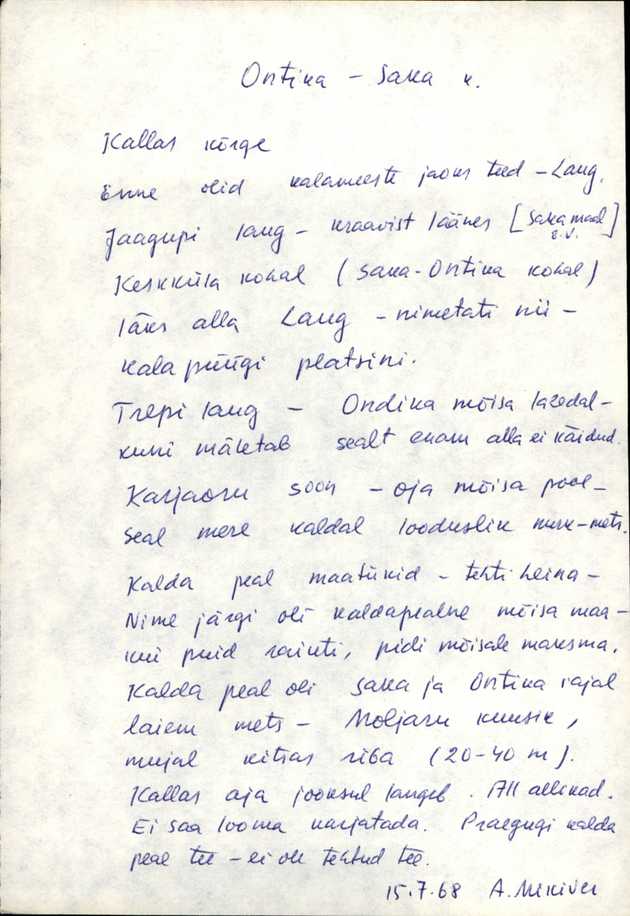 Ontika – Saka k.
Kallas kõrge
Enne olid kalameeste jaoks teed – Lang.
Jaagupi lang – kraavist läänes [Saka maal
E.V.]
Keskküla kohal (Saka-Ontika kohal)
läks alla Lang – nimetati nii –
kala püügi platsini.
Trepi lang – Ondika mõisa lähedal –
kuni mäletab sealt enam alla ei käidud.
Karjaoru soon – oja mõisa pool –
seal mere kaldal looduslik mets.
Kalda peal maatükid – tehti heina –
Nime järgi oli kaldapealne mõisa maa –
kui puid raiuti, pidi mõisale maksma.
Kalda peal oli Saka ja Ontika rajal
laiem mets – Moljaru kuusik,
mujal kitsas riba (20–40 m).
Kallas aja jooksul langeb. All allikad.
Ei saa looma karjatada. Praegugi kalda
peal tee – ei ole tehtud tee.
15.7.68 A.